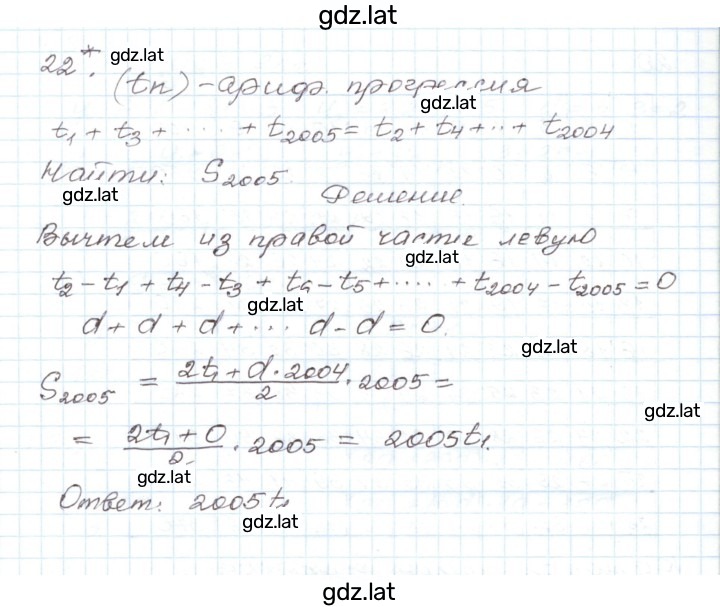 gdz.lat
22*. gdz.lat
(tn) - ариф. прогрессия
gdz.lat
t₁ + t₃ + ···· + t₂₀₀₅ = t₂ + t₄ + ··· + t₂₀₀₄
Найти: S₂₀₀₅.
gdz.lat
Решение.
Вычтем из правой части левую
gdz.lat
t₂ - t₁ + t₄ - t₃ + t₆ - t₅ + ···· + t₂₀₀₄ - t₂₀₀₅ = 0
gdz.lat
d + d + d + ··· d - d = 0.
gdz.lat
S₂₀₀₅ = (2t₁ + d · 2004)/2 · 2005 =
gdz.lat
= (2t₁ + 0)/2 · 2005 = 2005t₁.
gdz.lat
Ответ: 2005t₁
gdz.lat
gdz.lat